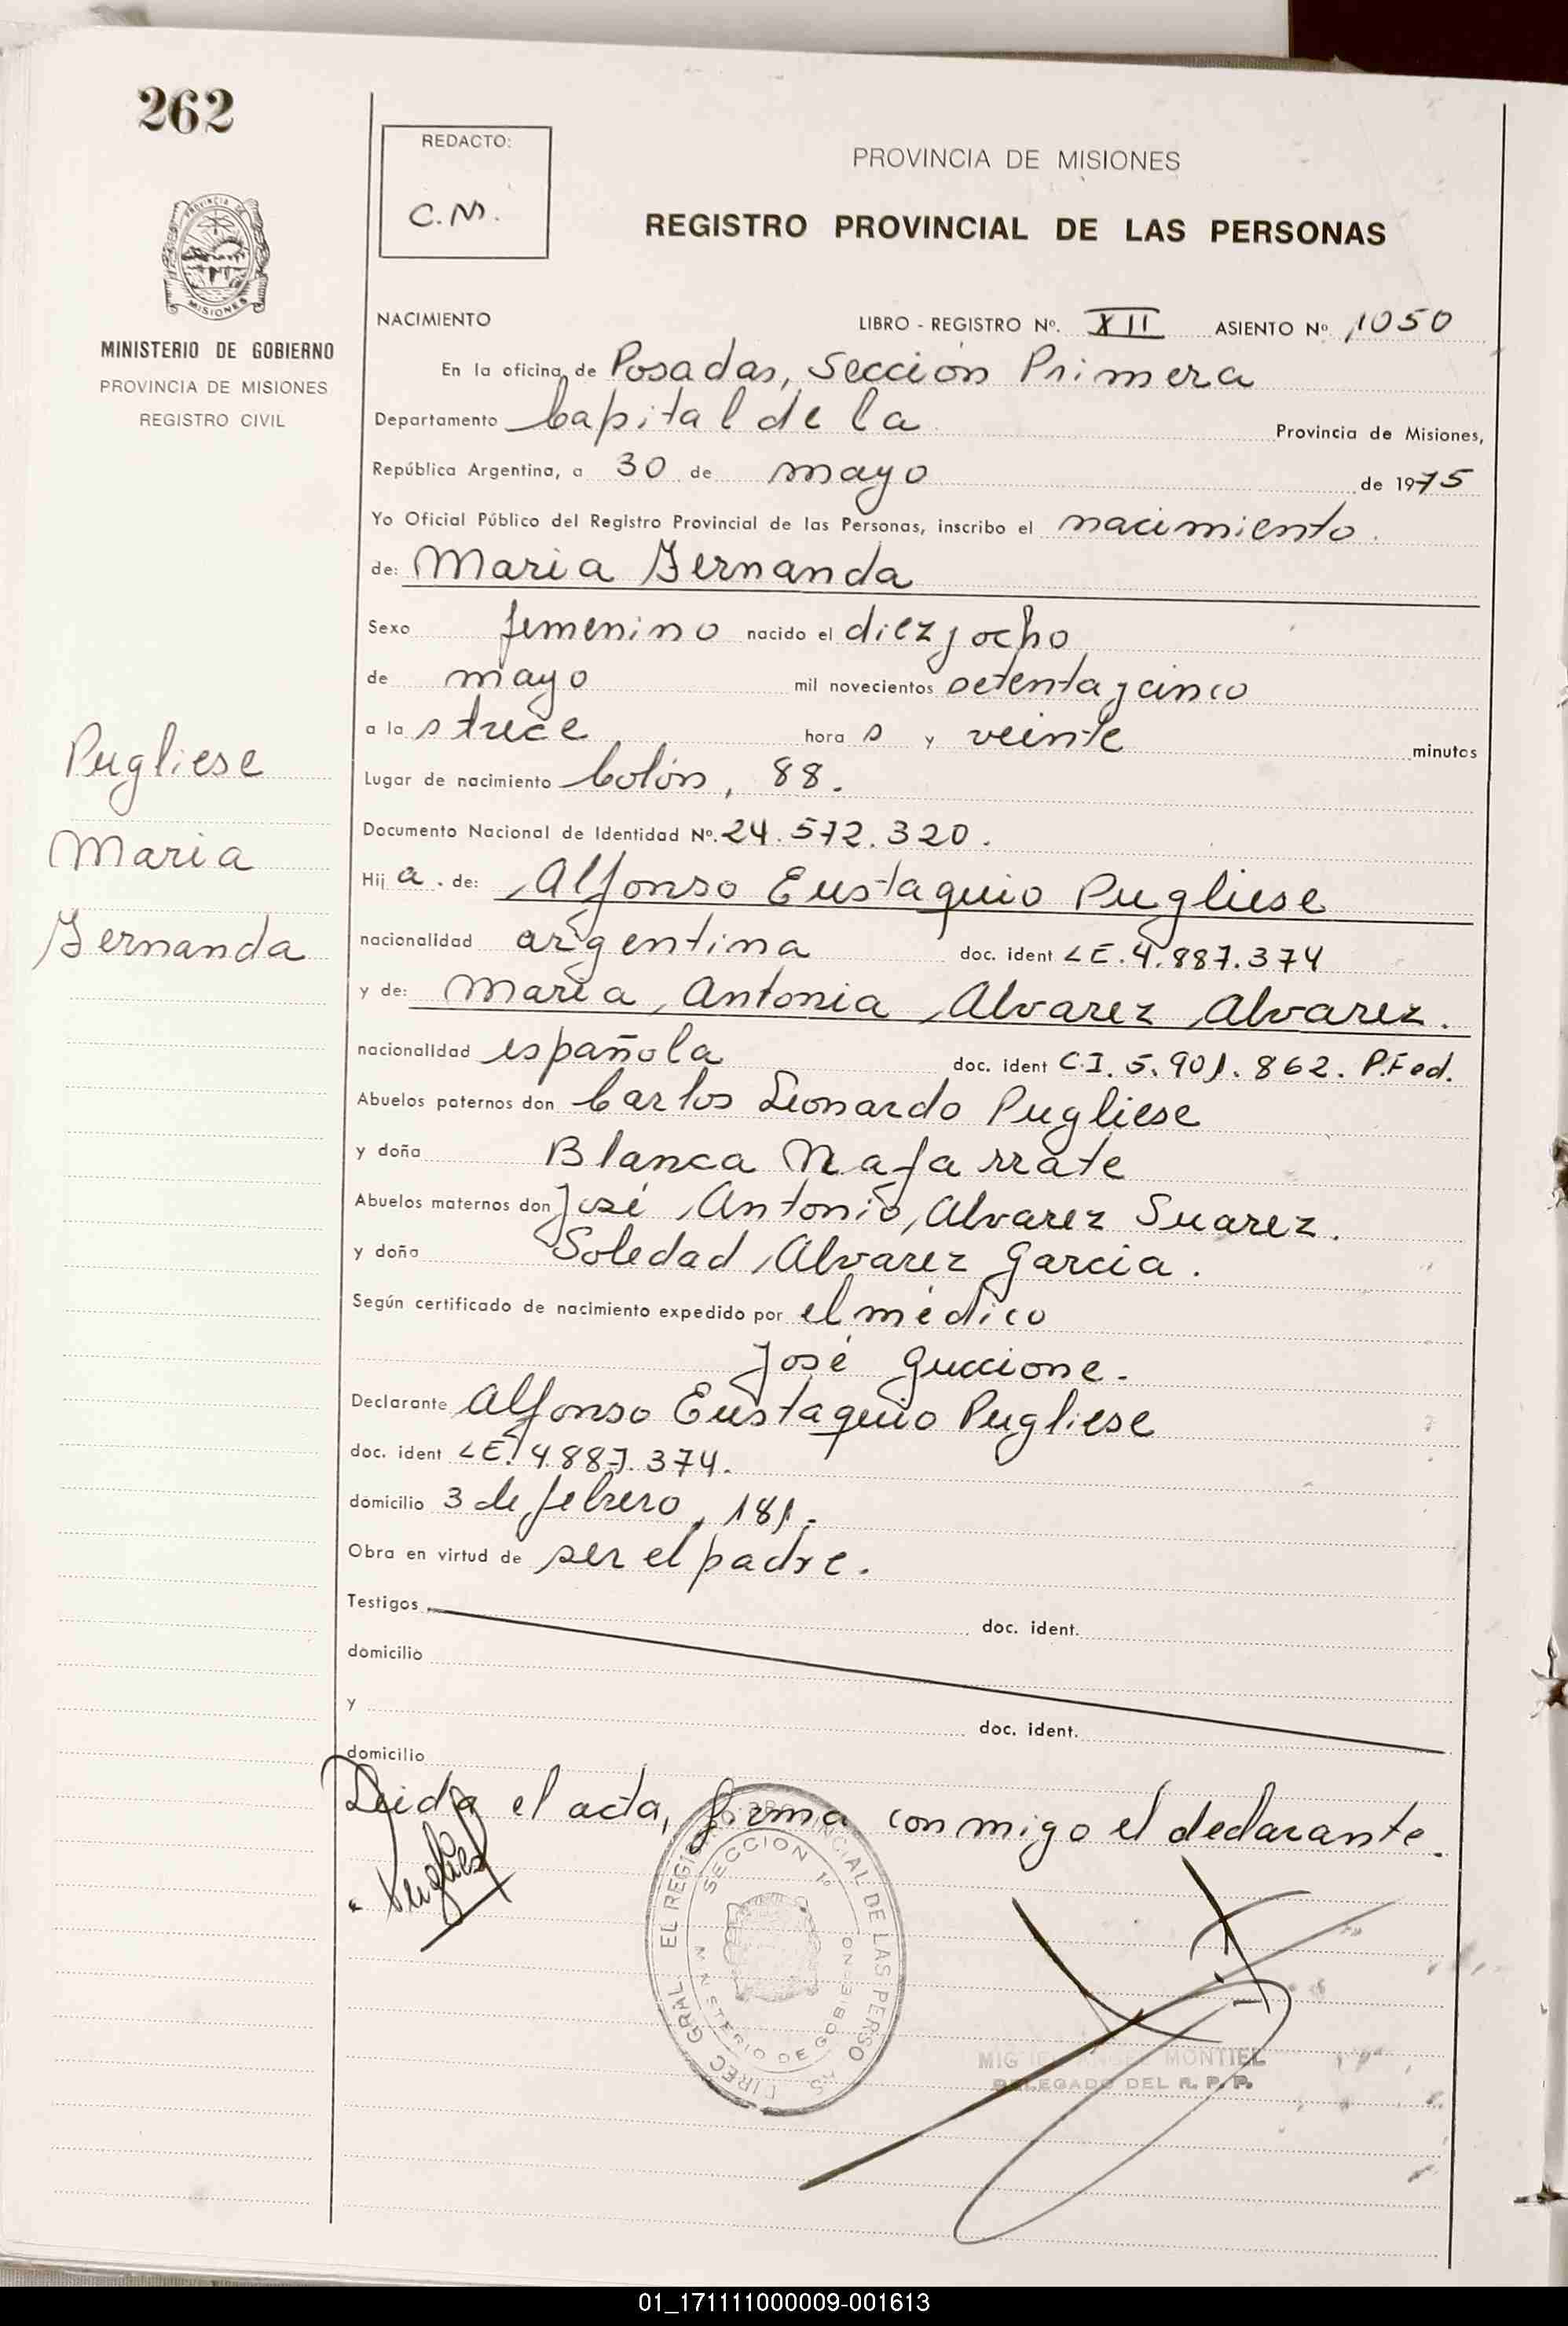 262
REDACTO:
C.M.
PROVINCIA DE MISIONES
REGISTRO PROVINCIAL DE LAS PERSONAS
MISIONES
MINISTERIO DE GOBIERNO
PROVINCIA DE MISIONES
REGISTRO CIVIL
NACIMIENTO LIBRO - REGISTRO Nº. XII ASIENTO Nº. 1050
En la oficina de Posadas, Sección Primera
Departamento Capital de la Provincia de Misiones,
República Argentina, a 30 de mayo de 1975
Yo Oficial Público del Registro Provincial de las Personas, inscribo el nacimiento.
de: Maria Fernanda
Sexo femenino nacido el diez y ocho
de mayo mil novecientos setenta y cinco
a las trece horas y veinte minutos
Lugar de nacimiento Colón, 88.
Documento Nacional de Identidad Nº. 24.572.320.
Hija. de: Alfonso Eustaquio Pugliese
nacionalidad argentina doc. ident LE. 4.887.374
y de: Maria Antonia Alvarez Alvarez.
nacionalidad española doc. ident C.I. 5.901.862. P.Fed.
Abuelos paternos don Carlos Leonardo Pugliese
y doña Blanca Nafarrate
Abuelos maternos don José Antonio Alvarez Suarez.
y doña Soledad Alvarez Garcia.
Según certificado de nacimiento expedido por el médico
José Guccione.
Declarante Alfonso Eustaquio Pugliese
doc. ident LE. 4.887.374.
domicilio 3 de febrero, 181.
Obra en virtud de ser el padre.
Testigos doc. ident.
domicilio
y doc. ident.
domicilio
Leida el acta, firma conmigo el declarante.
Pugliese
Maria
Fernanda
Pugliese
DIREC. GRAL. EL REGISTRO PROVINCIAL DE LAS PERSO AS
SECCION 1º
MINISTERIO DE GOBIERNO
MIGUEL ANGEL MONTIEL
DELEGADO DEL R. P. P.
01_171111000009-001613